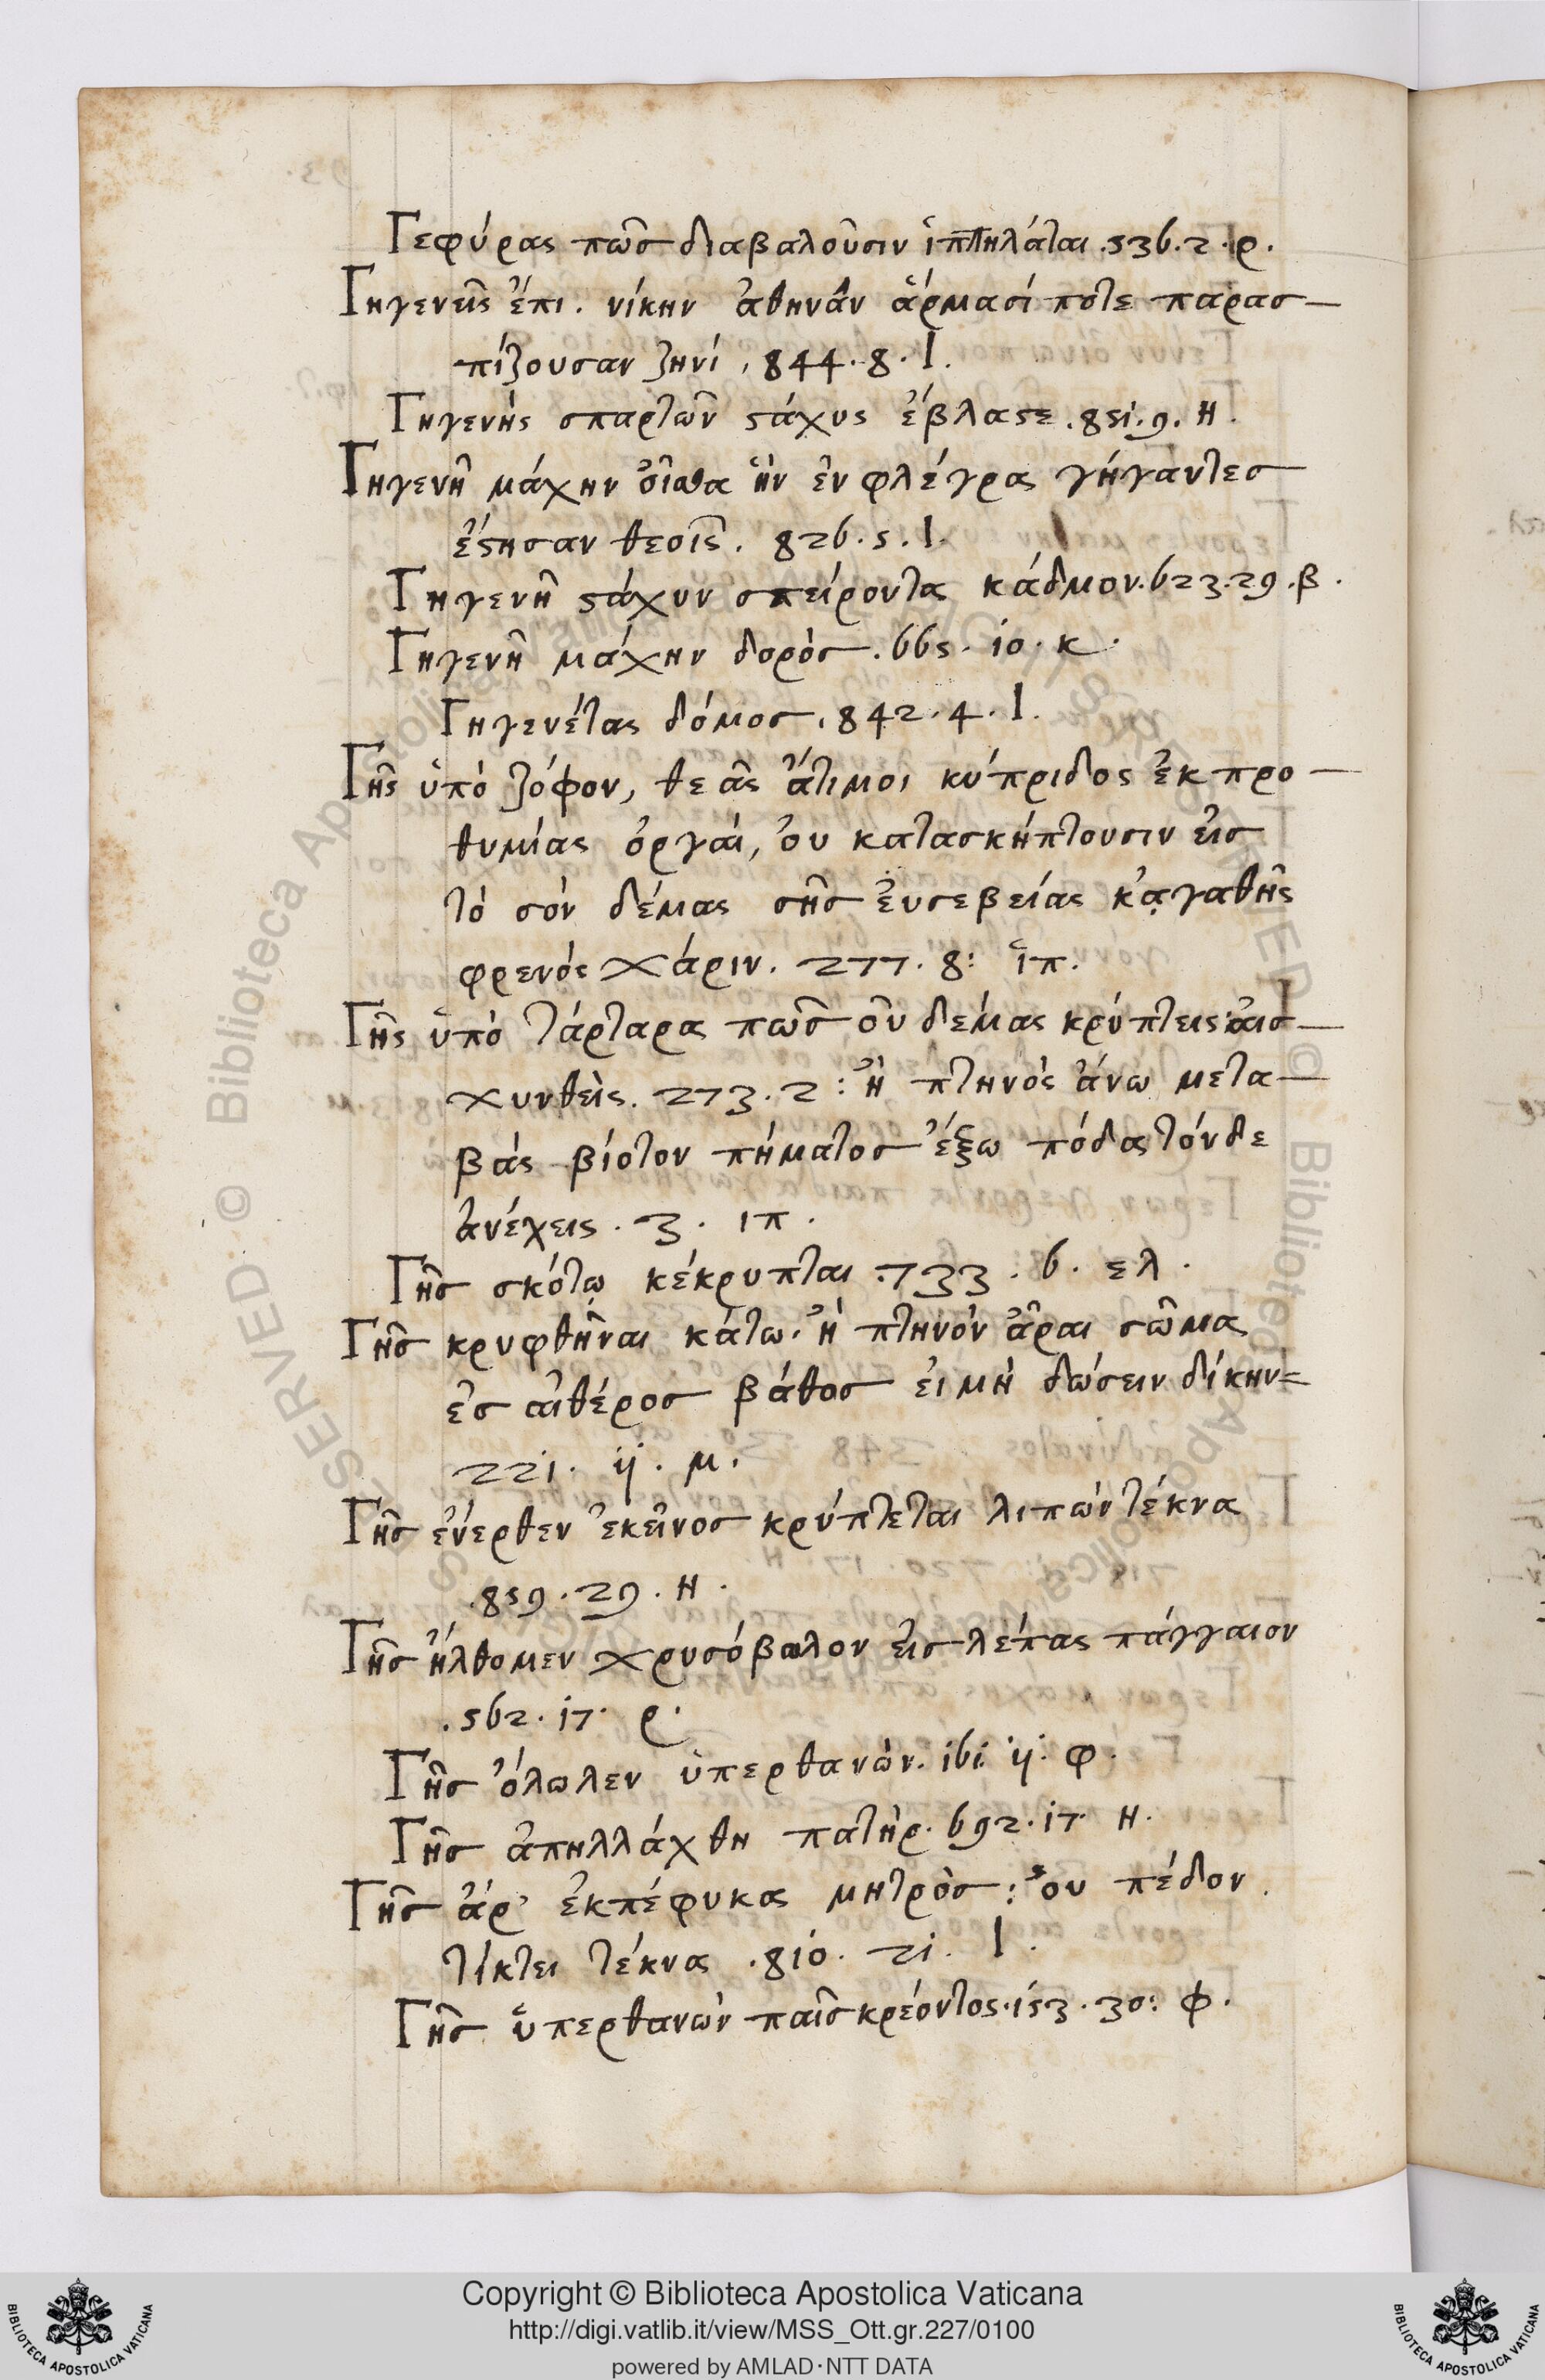 Γεφύρας πῶσ διαβαλοῦσιν ἱππηλάται .536.2.ρ.
Γηγενεῖς ἐπι. νίκην ἀθηνᾶν ἅρμασί ποτε παρασ—
πίζουσαν ζηνί, 844.8.Ι.
Γηγενὴς σπαρτῶν ϛάχυς ἔβλαϛε .851.9.Η.
Γηγενῆ μάχην οἶσθα ἣν ἐν φλέγρα γήγαντεσ
ἔϛησαν θεοῖς. 826.5.Ι.
Γηγενῆ ϛάχυν σπείροντα κάδμον.623.29.β.
Γηγενῆ μάχην δορὸσ.665.10.κ.
Γηγενέτας δόμοσ.842.4.Ι.
Γῆς ὑπὸ ζόφον, θεᾶς ἄτιμοι κύπριδος ἐκ προ—
θυμίας ὀργαὶ, ὀυ κατασκήπτουσιν εἰσ
τὸ σὸν δέμας σῆσ ἐυσεβείας κἀγαθῆς
φρενὸς χάριν. 277.8: ἱπ.
Γῆς ὑπὸ τάρταρα πῶσ οὐ δέμας κρύπτεις αἰσ—
χυνθεὶς. 273.2: ἢ πτηνὸς ἄνω μετα—
βὰς βίοτον πήματοσ ἔξω πόδα τόνδε
ἀνέχεις. 3. ιπ.
Γῆσ σκότῳ κέκρυπται .733.6. ελ.
Γῆσ κρυφθῆναι κάτω. ἢ πτηνὸν ἆραι σῶμα
ἐσ αἰθέροσ βάθοσ εἰ μὴ δώσειν δίκην=
221. ij. μ.
Γῆσ ἔνερθεν ἐκεῖνοσ κρύπτεται λιπὼν τέκνα
.859.29.Η.
Γῆσ ἤλθομεν χρυσόβωλον εἰσ λέπας πάγγαιον
.562.17. ρ.
Γῆσ ὄλωλεν ὑπερθανὼν. 161. ij. φ.
Γῆσ ἀπηλλάχθη πατὴρ. 692.17 Η.
Γῆσ ἄρ' ἐκπέφυκα μητρὸσ: ὀυ πέδον
τίκτει τέκνα .810. 21. Ι.
Γῆσ ὑπερθανὼν παῖσ κρέοντος.153.30: φ.
Copyright © Biblioteca Apostolica Vaticana
http://digi.vatlib.it/view/MSS_Ott.gr.227/0100
powered by AMLAD·NTT DATA
BIBLIOTECA APOSTOLICA VATICANA
BIBLIOTECA APOSTOLICA VATICANA